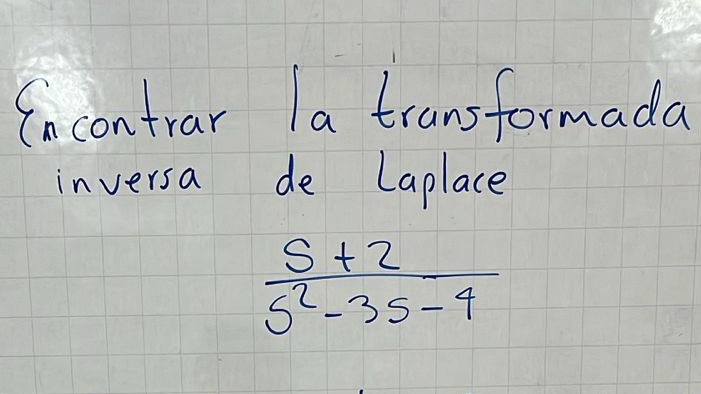 Encontrar la transformada
inversa de Laplace
s + 2
s² - 3s - 4